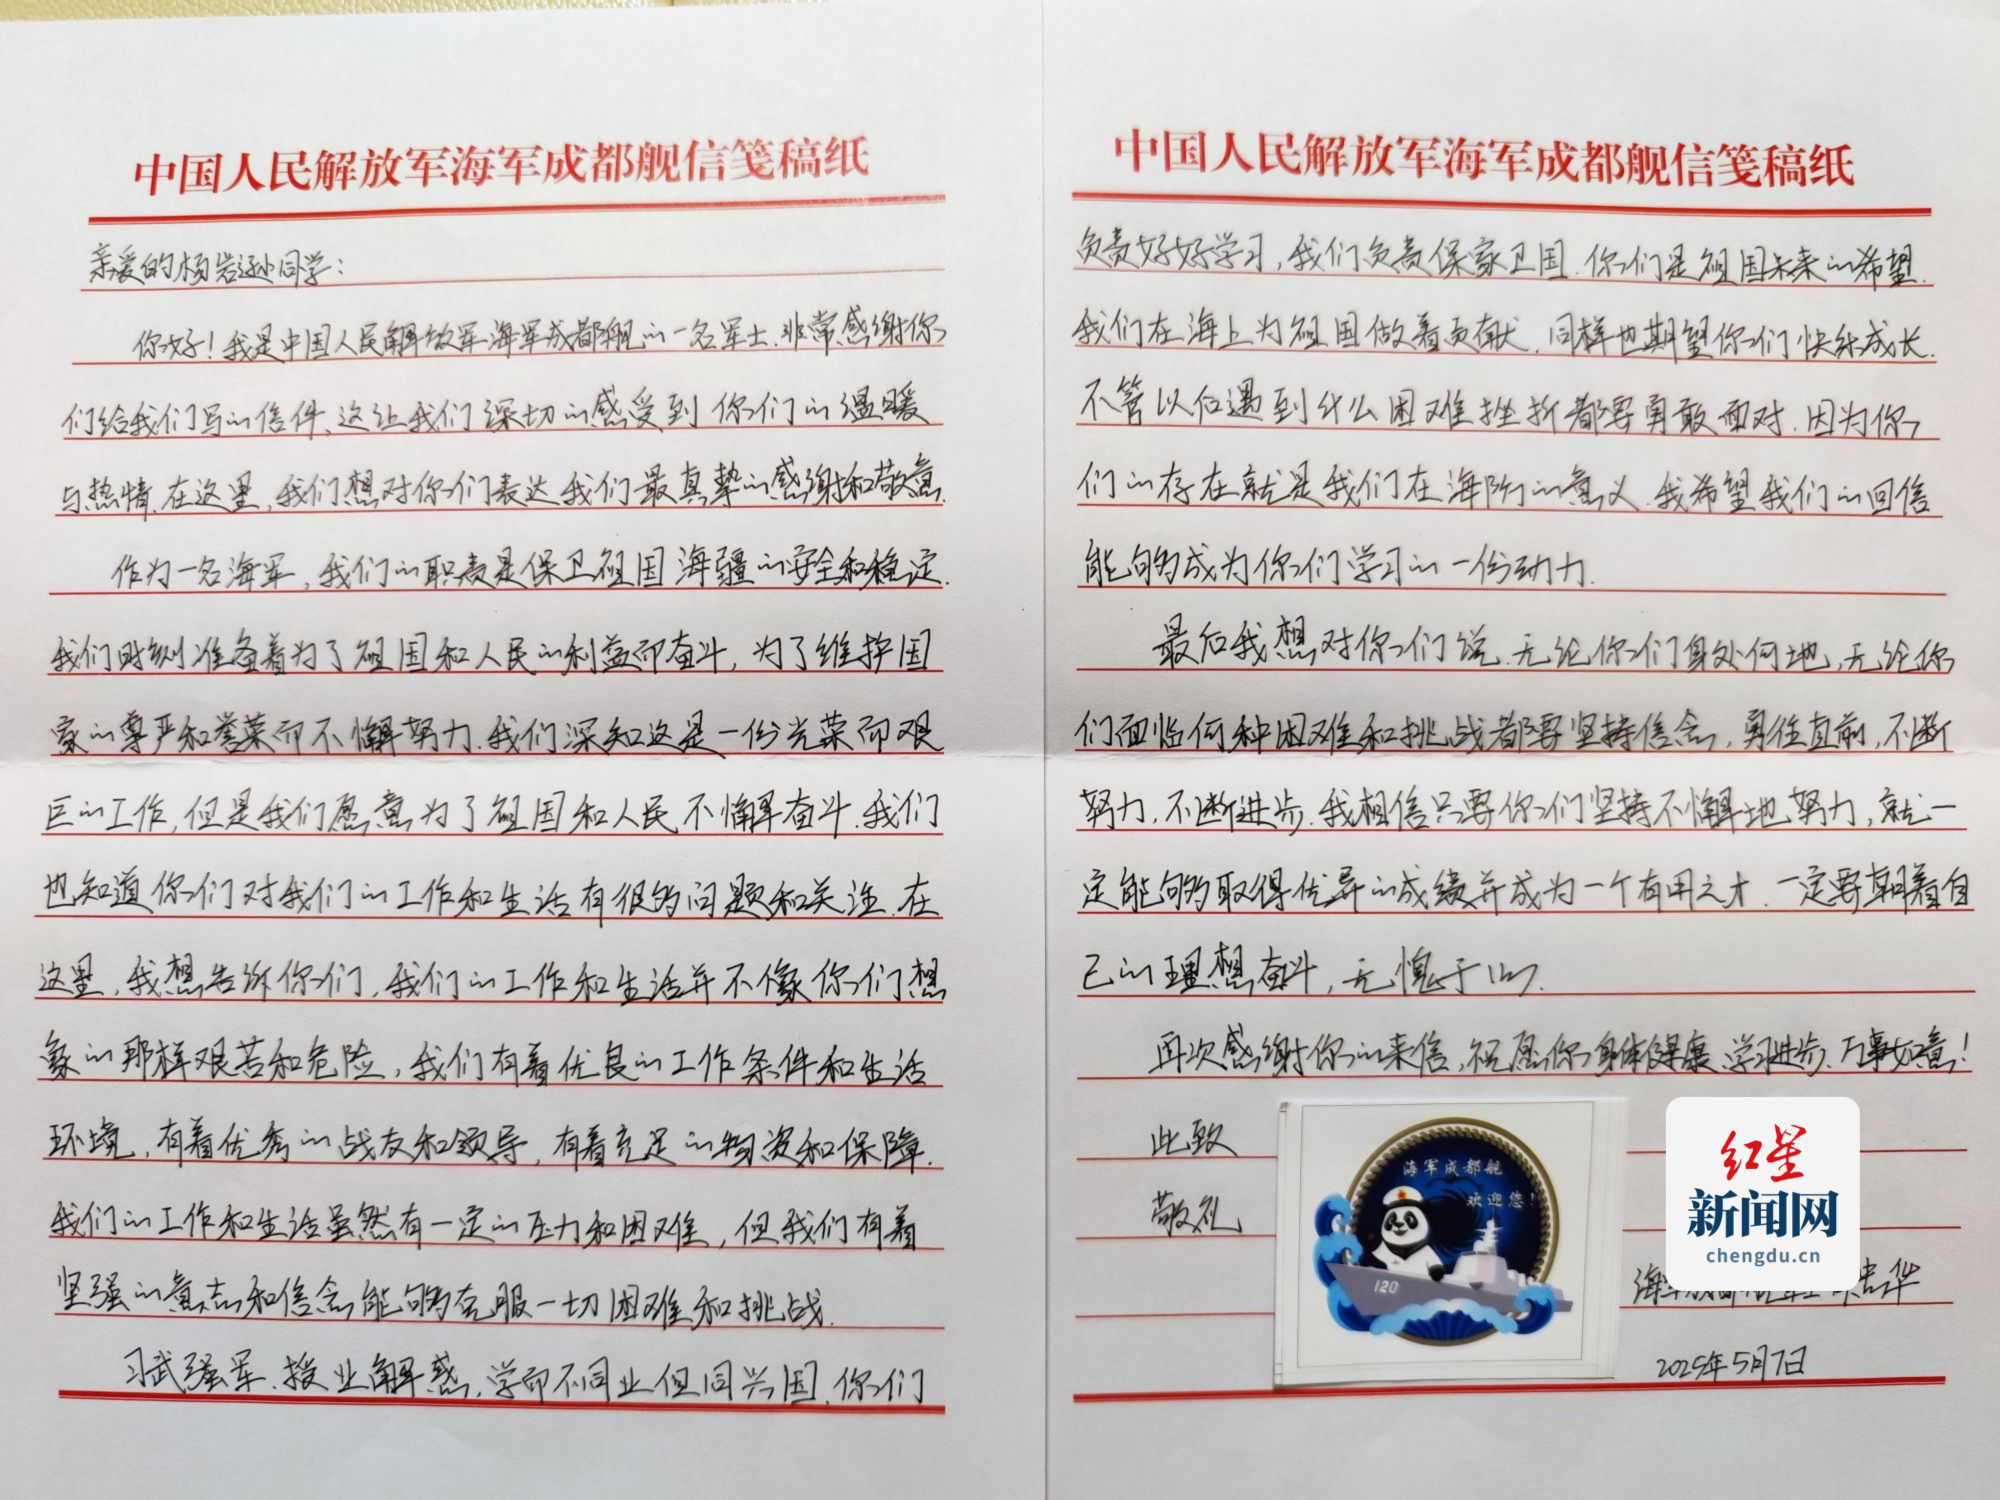 中国人民解放军海军成都舰信笺稿纸
亲爱的杨岩逊同学：
你好！我是中国人民解放军海军成都舰的一名军士.非常感谢你
们给我们写的信件、这让我们深切的感受到你们的温暖
与热情.在这里,我们想对你们表达我们最真挚的感谢和敬意.
作为一名海军,我们的职责是保卫祖国海疆的安全和稳定.
我们时刻准备着为了祖国和人民的利益而奋斗,为了维护国
家的尊严和誉荣而不懈努力.我们深知这是一份光荣而艰
巨的工作,但是我们愿意为了祖国和人民不懈奋斗.我们
也知道你们对我们的工作和生活有很多问题和关注.在
这里,我想告诉你们,我们的工作和生活并不像你们想
象的那样艰苦和危险,我们有着优良的工作条件和生活
环境,有着优秀的战友和领导,有着充足的物资和保障.
我们的工作和生活虽然有一定的压力和困难,但我们有着
坚强的意志和信念能够克服一切困难和挑战.
习武强军.授业解惑,学而不同业但同兴国,你们
中国人民解放军海军成都舰信笺稿纸
负责好好学习,我们负责保家卫国.你们是祖国未来的希望.
我们在海上为祖国做着贡献,同样也期望你们快乐成长.
不管以后遇到什么困难挫折都要勇敢面对.因为你
们的存在就是我们在海防的意义.我希望我们的回信
能够成为你们学习的一份动力.
最后我想对你们说.无论你们身处何地,无论你
们面临何种困难和挑战都要坚持信念,勇往直前,不断
努力,不断进步.我相信只要你们坚持不懈地努力,就一
定能够取得优异的成绩并成为一个有用之才.一定要朝着自
己的理想奋斗,无愧于心.
再次感谢你的来信,祝愿你身体健康、学习进步、万事如意！
此致
敬礼
海军成都舰
欢迎您！
120
红星
新闻网
chengdu.cn
2025年5月7日